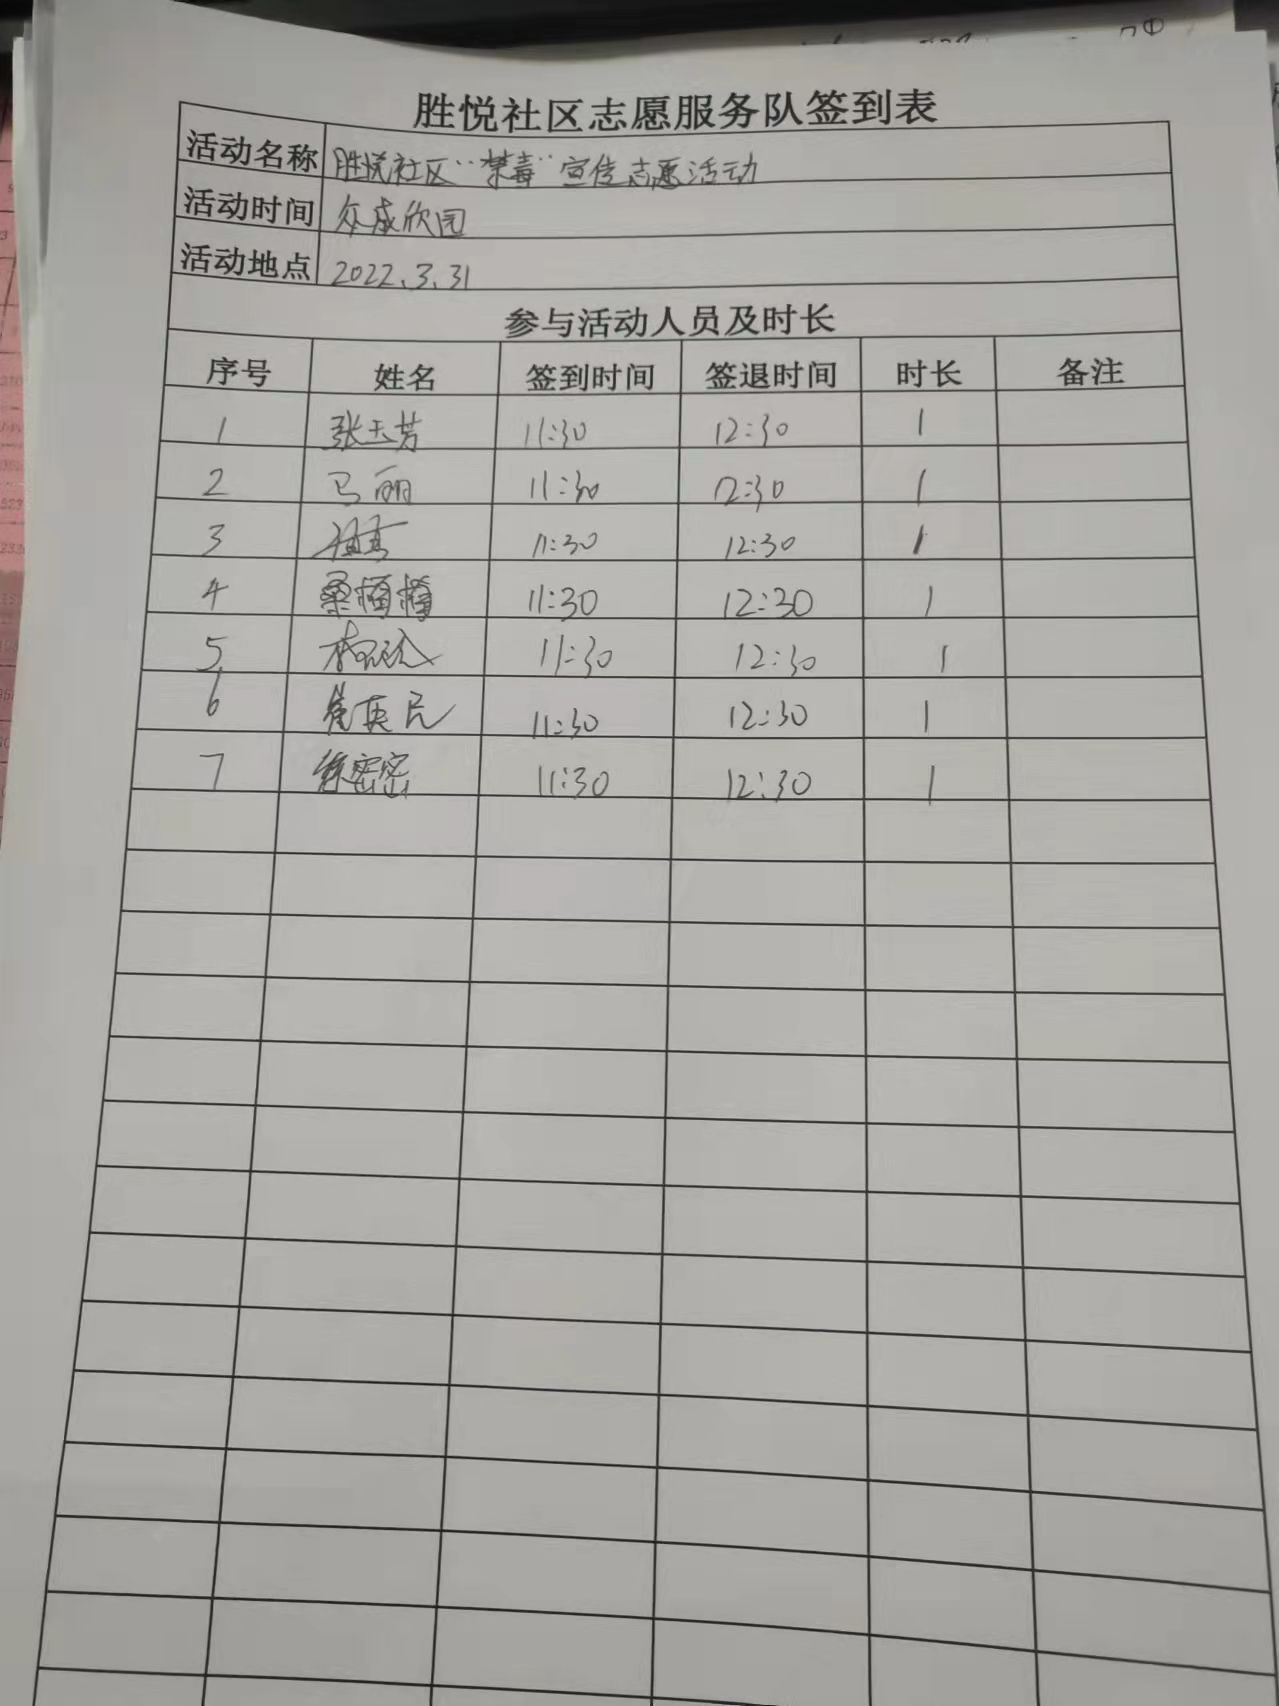 胜悦社区志愿服务队签到表
活动名称 胜悦社区"禁毒"宣传志愿活动
活动时间 众成欣园
活动地点 2022.3.31
参与活动人员及时长
序号 姓名 签到时间 签退时间 时长 备注
1 张玉芳 11:30 12:30 1
2 马丽 11:30 12:30 1
3 11:30 12:30 1
4 桑 11:30 12:30 1
5 11:30 12:30 1
6 英民 11:30 12:30 1
7 密密 11:30 12:30 1